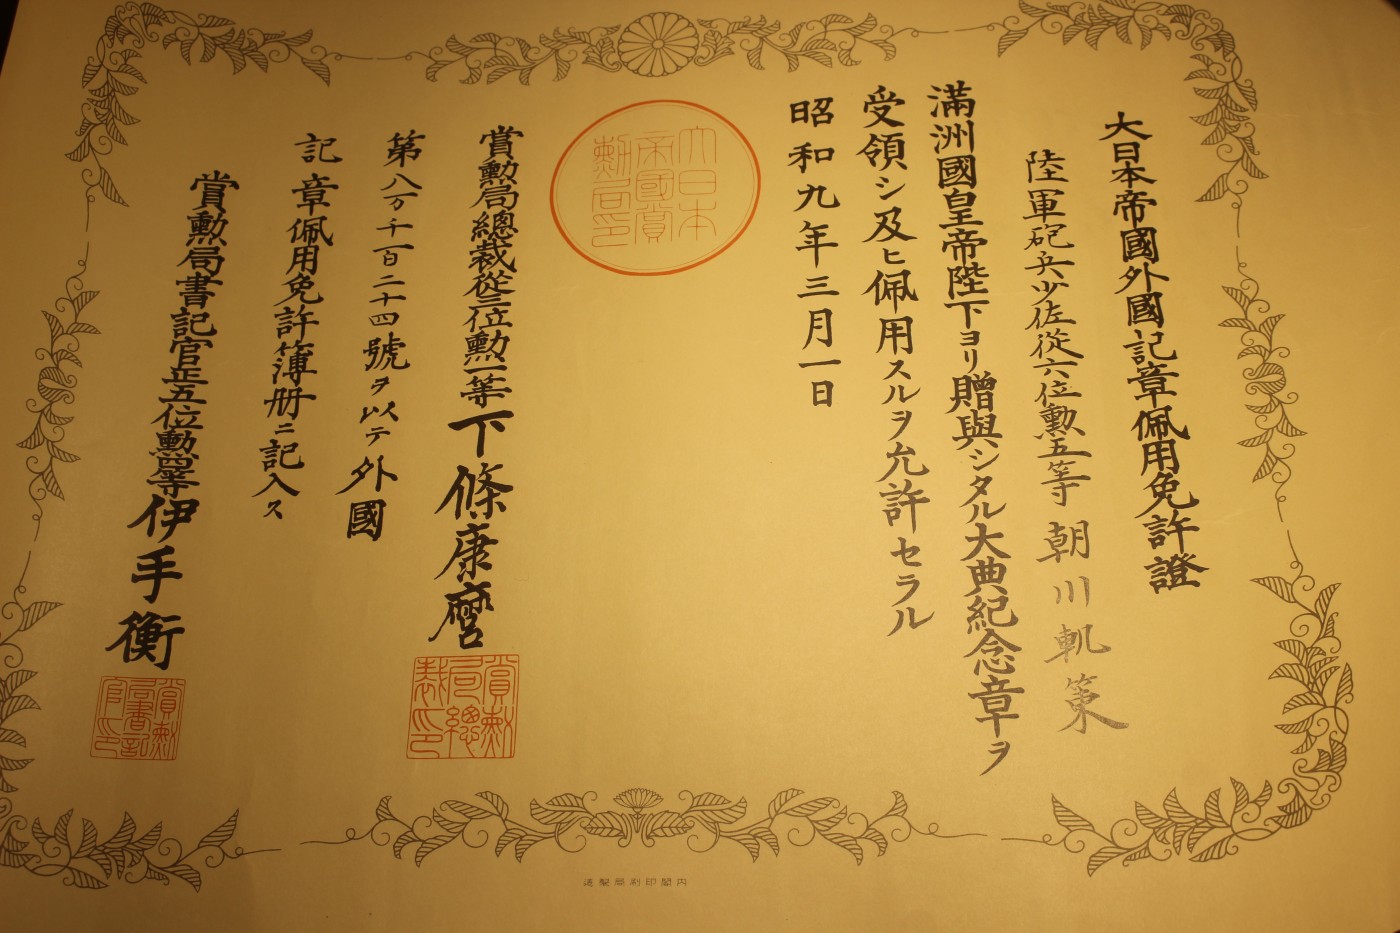 大日本帝國外國記章佩用免許證
陸軍砲兵少佐從六位勲五等 朝川 軌 策
滿洲國皇帝陛下ヨリ贈與シタル大典紀念章ヲ
受領シ及ヒ佩用スルヲ允許セラル
昭和九年三月一日
大日本
帝國賞
勲局印
賞勲局總裁從三位勲一等下條康麿
賞勲
局總
裁印
第八万千百二十四號ヲ以テ外國
記章佩用免許簿册ニ記入ス
賞勲局書記官正五位勲四等伊手衡
賞勲
局書記
官印
內閣印刷局製造